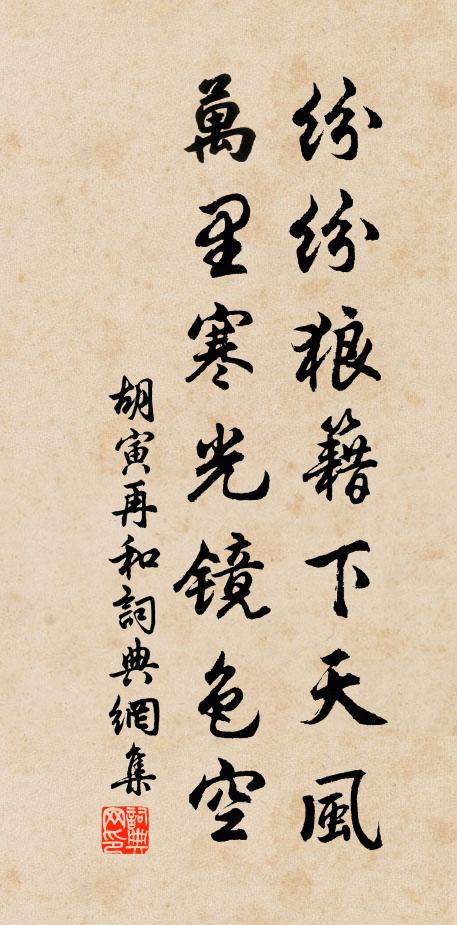 紛紛狼籍下天風
萬里寒光镜色空
胡寅再和詞典網集
詞典网印